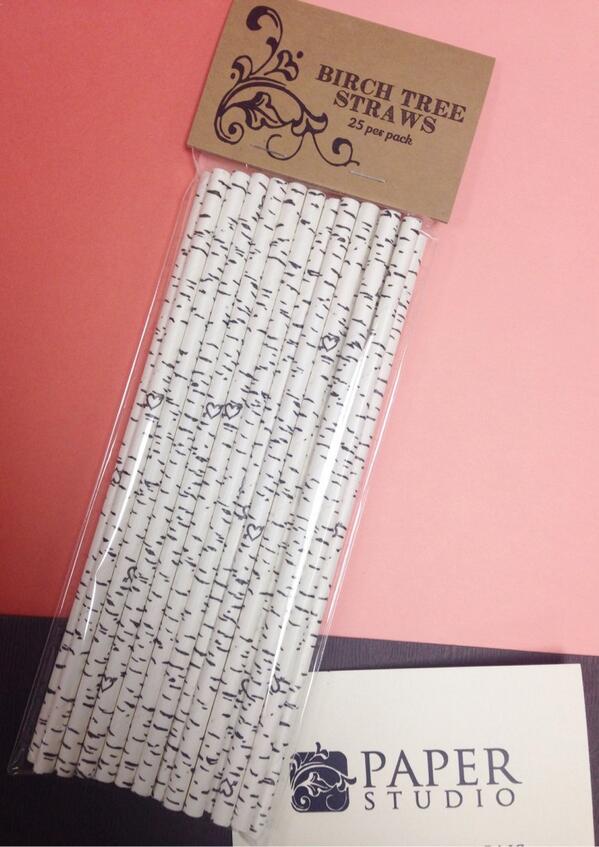 BIRCH TREE
STRAWS
25 per pack
PAPER
STUDIO